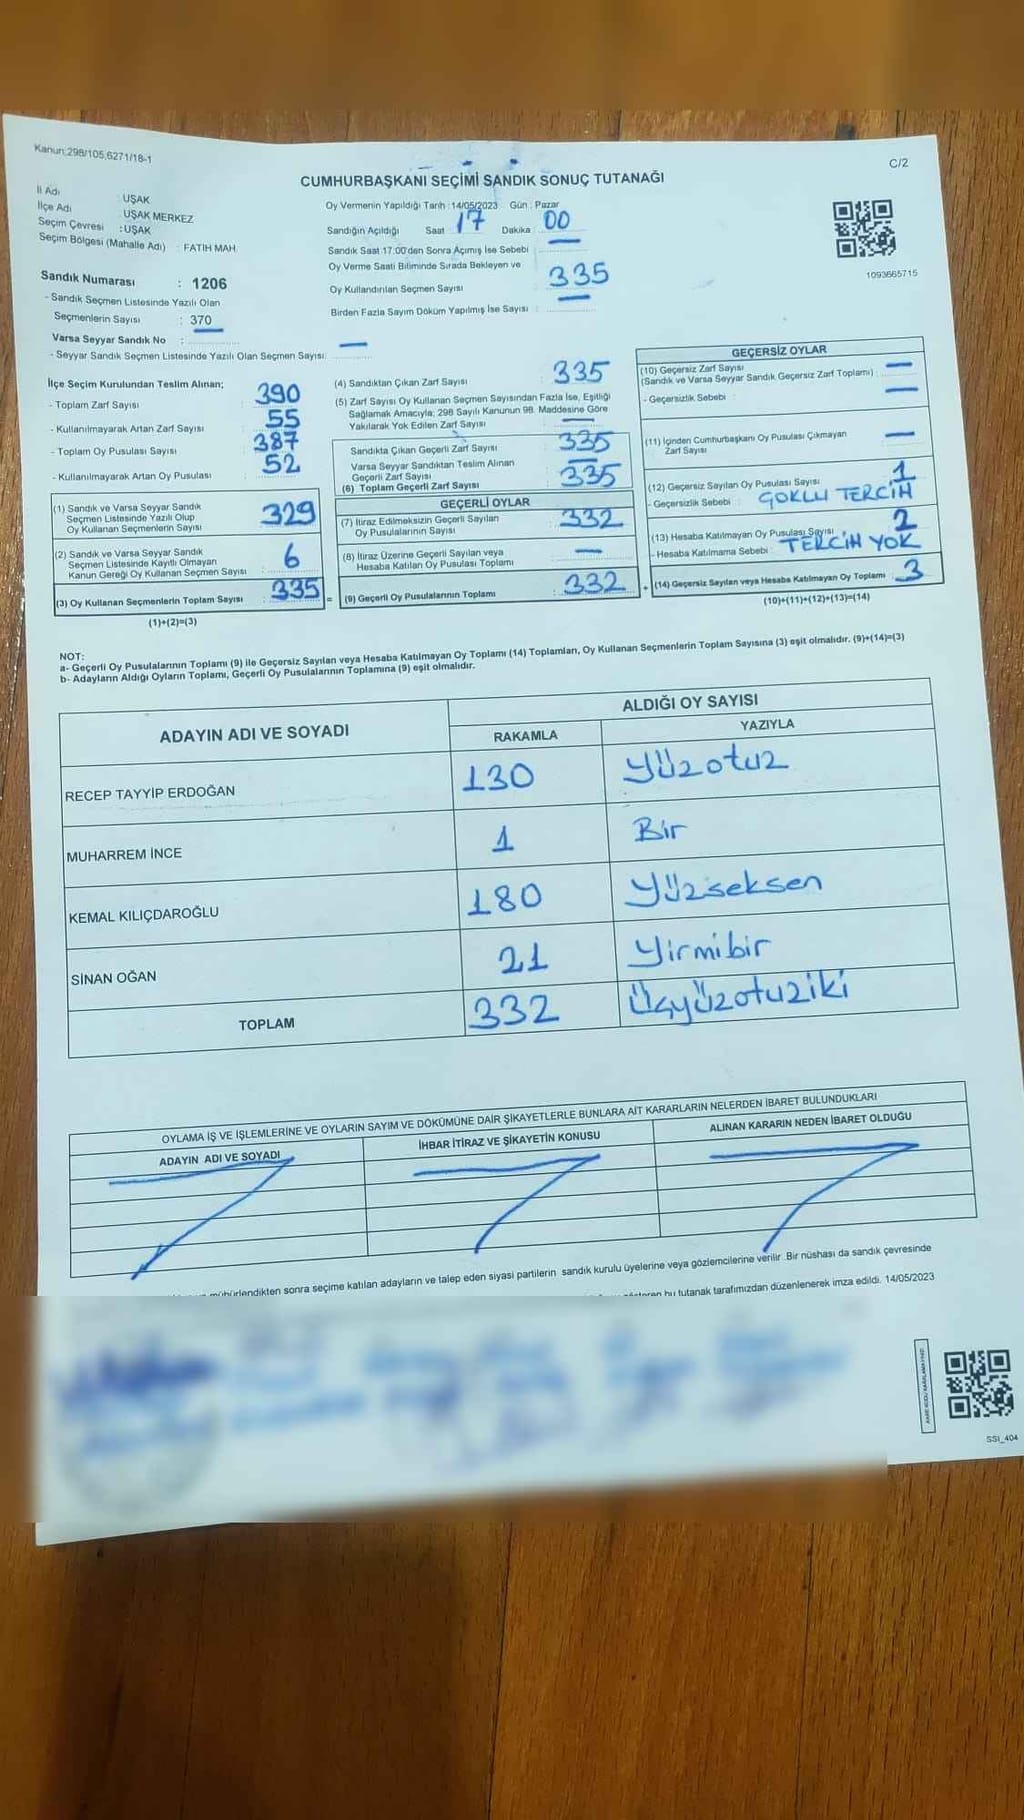 Kanun:298/105,6271/18-1
C/2
CUMHURBAŞKANI SEÇİMİ SANDIK SONUÇ TUTANAĞI
İl Adı : UŞAK
İlçe Adı : UŞAK MERKEZ
Seçim Çevresi : UŞAK
Seçim Bölgesi (Mahalle Adı) : FATİH MAH.
Sandık Numarası : 1206
- Sandık Seçmen Listesinde Yazılı Olan
Seçmenlerin Sayısı : 370
Varsa Seyyar Sandık No :
- Seyyar Sandık Seçmen Listesinde Yazılı Olan Seçmen Sayısı: —
Oy Vermenin Yapıldığı Tarih :14/05/2023 Gün : Pazar
Sandığın Açıldığı Saat 17 Dakika 00
Sandık Saat 17:00'den Sonra Açımış İse Sebebi : —
Oy Verme Saati Bitiminde Sırada Bekleyen ve
Oy Kullandırılan Seçmen Sayısı : 335
Birden Fazla Sayım Döküm Yapılmış İse Sayısı : —
1093665715
İlçe Seçim Kurulundan Teslim Alınan;
- Toplam Zarf Sayısı : 390
- Kullanılmayarak Artan Zarf Sayısı : 55
- Toplam Oy Pusulası Sayısı : 387
- Kullanılmayarak Artan Oy Pusulası : 52
(1) Sandık ve Varsa Seyyar Sandık
Seçmen Listesinde Yazılı Olup
Oy Kullanan Seçmenlerin Sayısı : 329
(2) Sandık ve Varsa Seyyar Sandık
Seçmen Listesinde Kayıtlı Olmayan
Kanun Gereği Oy Kullanan Seçmen Sayısı : 6
(3) Oy Kullanan Seçmenlerin Toplam Sayısı : 335 =
(1)+(2)=(3)
(4) Sandıktan Çıkan Zarf Sayısı : 335
(5) Zarf Sayısı Oy Kullanan Seçmen Sayısından Fazla İse, Eşitliği
Sağlamak Amacıyla; 298 Sayılı Kanunun 98. Maddesine Göre
Yakılarak Yok Edilen Zarf Sayısı : —
Sandıkta Çıkan Geçerli Zarf Sayısı : 335
Varsa Seyyar Sandıktan Teslim Alınan
Geçerli Zarf Sayısı : —
(6) Toplam Geçerli Zarf Sayısı : 335
GEÇERLİ OYLAR
(7) İtiraz Edilmeksizin Geçerli Sayılan
Oy Pusulalarının Sayısı : 332
(8) İtiraz Üzerine Geçerli Sayılan veya
Hesaba Katılan Oy Pusulası Toplamı : —
(9) Geçerli Oy Pusulalarının Toplamı : 332 +
GEÇERSİZ OYLAR
(10) Geçersiz Zarf Sayısı
(Sandık ve Varsa Seyyar Sandık Geçersiz Zarf Toplamı) : —
- Geçersizlik Sebebi : —
(11) İçinden Cumhurbaşkanı Oy Pusulası Çıkmayan
Zarf Sayısı : —
(12) Geçersiz Sayılan Oy Pusulası Sayısı : 1
- Geçersizlik Sebebi : ÇOKLU TERCİH
(13) Hesaba Katılmayan Oy Pusulası Sayısı : 2
- Hesaba Katılmama Sebebi : TERCİH YOK
(14) Geçersiz Sayılan veya Hesaba Katılmayan Oy Toplamı : 3
(10)+(11)+(12)+(13)=(14)
NOT:
a- Geçerli Oy Pusulalarının Toplamı (9) ile Geçersiz Sayılan veya Hesaba Katılmayan Oy Toplamı (14) Toplamları, Oy Kullanan Seçmenlerin Toplam Sayısına (3) eşit olmalıdır. (9)+(14)=(3)
b- Adayların Aldığı Oyların Toplamı, Geçerli Oy Pusulalarının Toplamına (9) eşit olmalıdır.
ADAYIN ADI VE SOYADI ALDIĞI OY SAYISI
RAKAMLA YAZIYLA
RECEP TAYYİP ERDOĞAN 130 Yüzotuz
MUHARREM İNCE 1 Bir
KEMAL KILIÇDAROĞLU 180 Yüzseksen
SİNAN OĞAN 21 Yirmibir
TOPLAM 332 Üçyüzotuziki
OYLAMA İŞ VE İŞLEMLERİNE VE OYLARIN SAYIM VE DÖKÜMÜNE DAİR ŞİKAYETLERLE BUNLARA AİT KARARLARIN NELERDEN İBARET BULUNDUKLARI
ADAYIN ADI VE SOYADI İHBAR İTİRAZ VE ŞİKAYETİN KONUSU ALINAN KARARIN NEDEN İBARET OLDUĞU
mühürlendikten sonra seçime katılan adayların ve talep eden siyasi partilerin sandık kurulu üyelerine veya gözlemcilerine verilir. Bir nüshası da sandık çevresinde
bu tutanak tarafımızdan düzenlenerek imza edildi. 14/05/2023
SSI_404